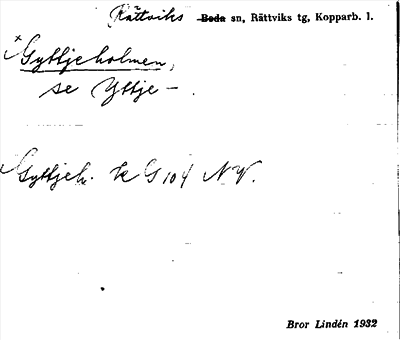 Rättviks Boda sn, Rättviks tg, Kopparb. l.
× Gyttjeholmen,
se Yttje- .
Gyttjeh. k G 104 NV.
Bror Lindén 1932